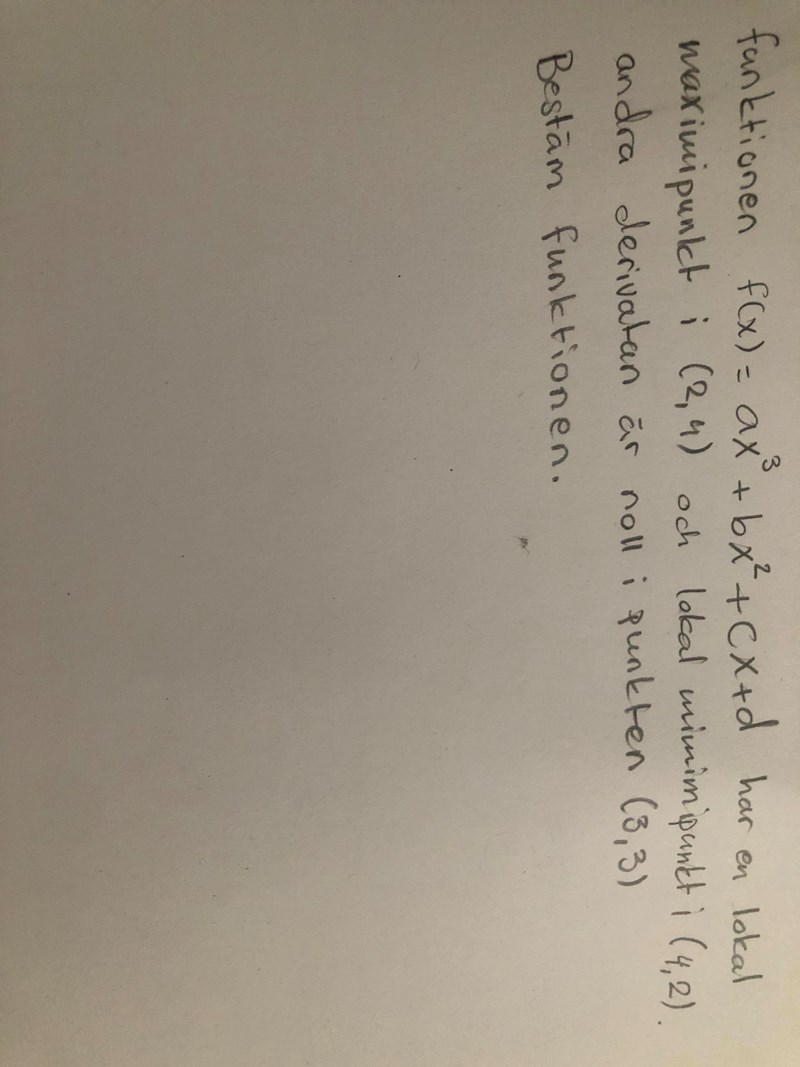 funktionen f(x) = ax³ + bx² + Cx+d har en lokal
maximipunkt i (2,4) och lokal minimipunkt i (4,2).
andra derivatan är noll i punkten (3,3)
Bestäm funktionen.